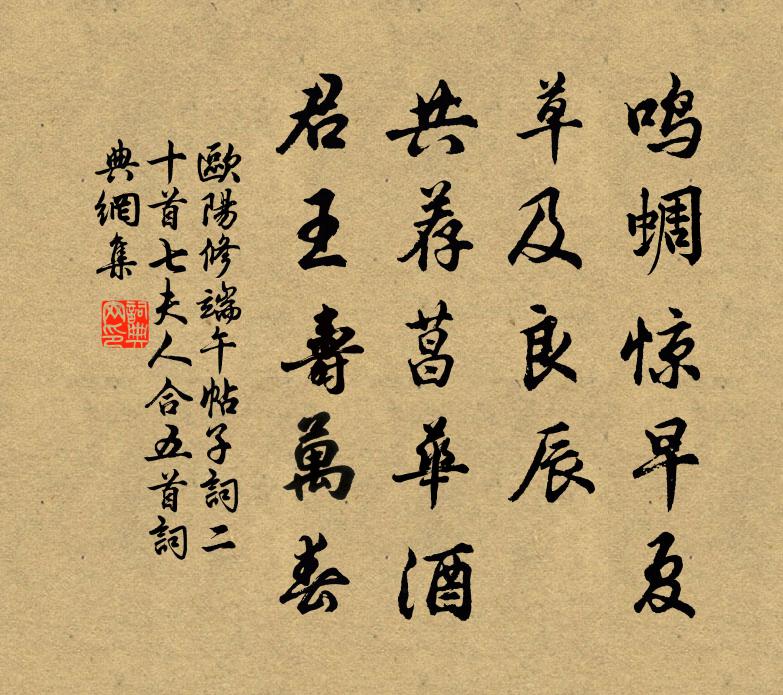 鸣蜩惊早夏
草及良辰
共荐菖華酒
君王壽萬春
歐陽修端午帖子詞二
十首七夫人合五首詞
典網集
詞典网印